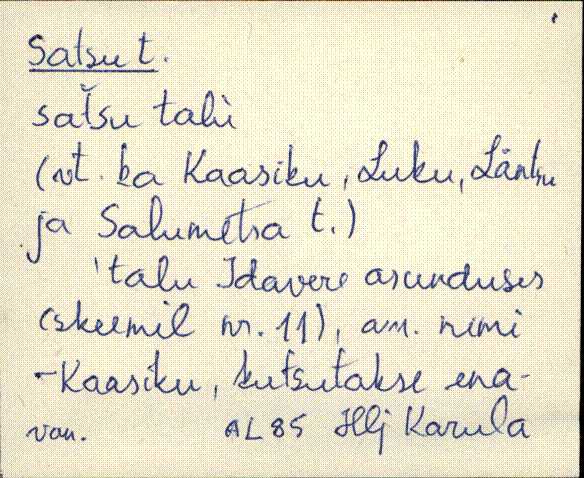 Satsu t.
satšu talù
(vt. ka Kaasiku, Luku, Läntsu
ja Salumetsa t.)
'talu Idavere asunduses
(skeemil nr. 11), am. nimi
-Kaasiku, kutsutakse ena-
van. AL 85 Hlj Karula